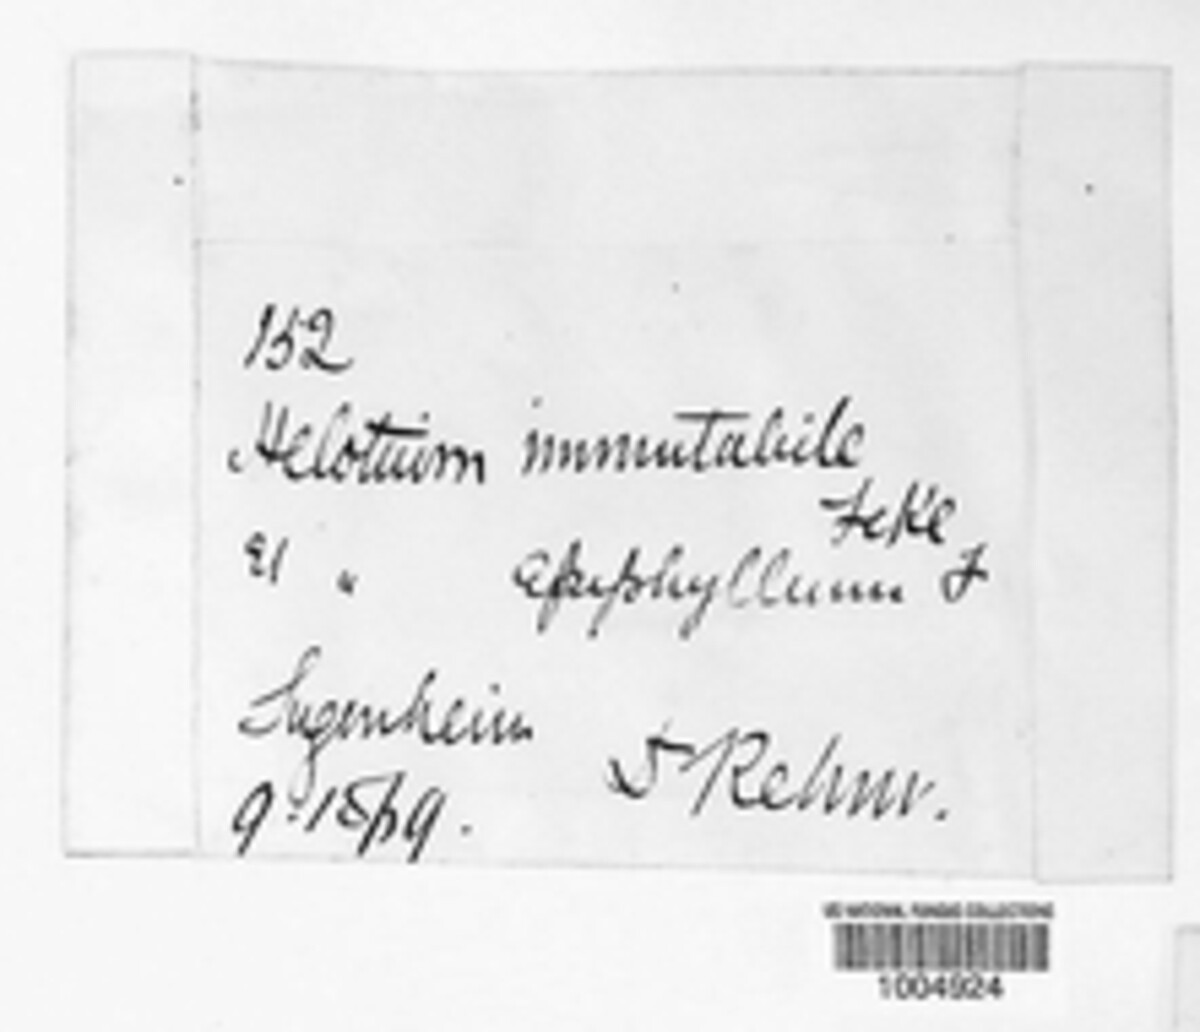 152
Helotium immutabile
Fckl
et " epiphyllum F
Sugenheim
D Rehm.
9. 1879.
US NATIONAL FUNGUS COLLECTIONS
1004924